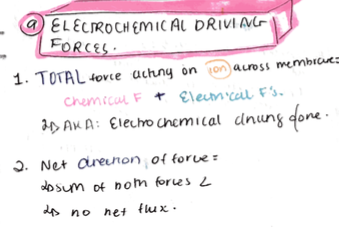 9 ELECTROCHEMICAL DRIVING
FORCES.
1. TOTAL force acting on ion across membrane=
Chemical F + Electrical F's.
↳ AKA: Electrochemical driving force.
2. Net direction of force =
↳ sum of both forces &
↳ no net flux.